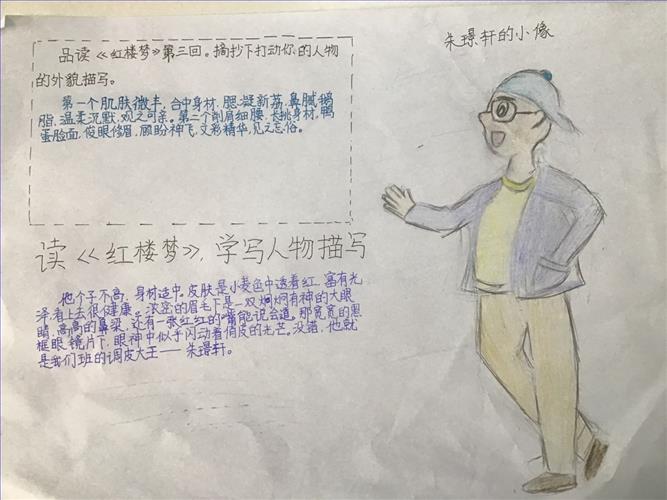 品读《红楼梦》第三回。摘抄下打动你的人物
的外貌描写。
第一个肌肤微丰，合中身材，腮凝新荔，鼻腻鹅
脂，温柔沉默，观之可亲。第二个削肩细腰，长挑身材，鸭
蛋脸面，俊眼修眉，顾盼神飞，文彩精华，见之忘俗。
朱璟轩的小像
读《红楼梦》，学写人物描写
他个子不高，身材适中。皮肤是小麦色中透着红，富有光
泽，看上去很健康。浓密的眉毛下是一双炯炯有神的大眼
睛，高高的鼻梁，还有一张红红的嘴能说会道。那宽宽的黑
框眼镜片下，眼神中似乎闪动着俏皮的光芒。没错，他就
是我们班的调皮大王——朱璟轩。